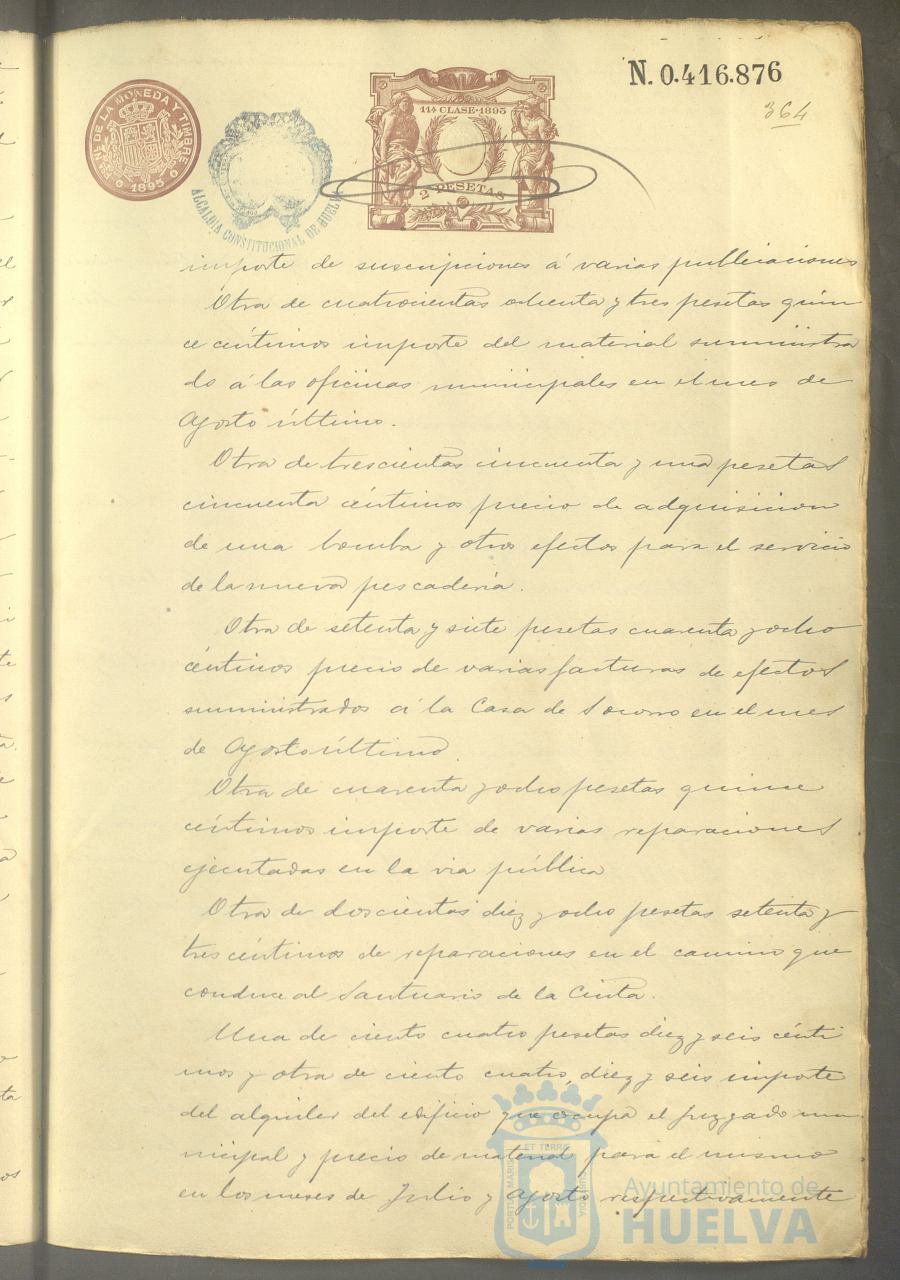 N. 0.416.876
364
FAB. DE LA MONEDA Y TIMBRE
1895
ALCALDIA CONSTITUCIONAL DE HUELVA
11ª CLASE·1895
2 PESETAS
importe de suscripciones á varias publicaciones
Otra de cuatrocientas ochenta y tres pesetas quin
ce céntimos importe del material suministra
do á las oficinas municipales en el mes de
Agosto último.
Otra de trescientas cincuenta y una pesetas
cincuenta céntimos precio de adquisicion
de una bomba y otros efectos para el servicio
de la nueva pescadería.
Otra de setenta y siete pesetas cuarenta y ocho
céntimos precio de varias facturas de efectos
suministrados á la Casa de Socorro en el mes
de Agosto último.
Otra de cuarenta y ocho pesetas quince
céntimos importe de varias reparaciones
ejecutadas en la via pública
Otra de doscientas diez y ocho pesetas setenta y
tres céntimos de reparaciones en el camino que
conduce al Santuario de la Cinta.
Una de ciento cuatro pesetas diez y seis cénti
mos y otra de ciento cuatro, diez y seis importe
del alquiler del edificio que ocupa el Juzgado mu-
nicipal y precio de material para el mismo
en los meses de Julio y Agosto respectivamente
PORTUS MARIS ET TERRÆ CUSTODIA
Ayuntamiento de
HUELVA